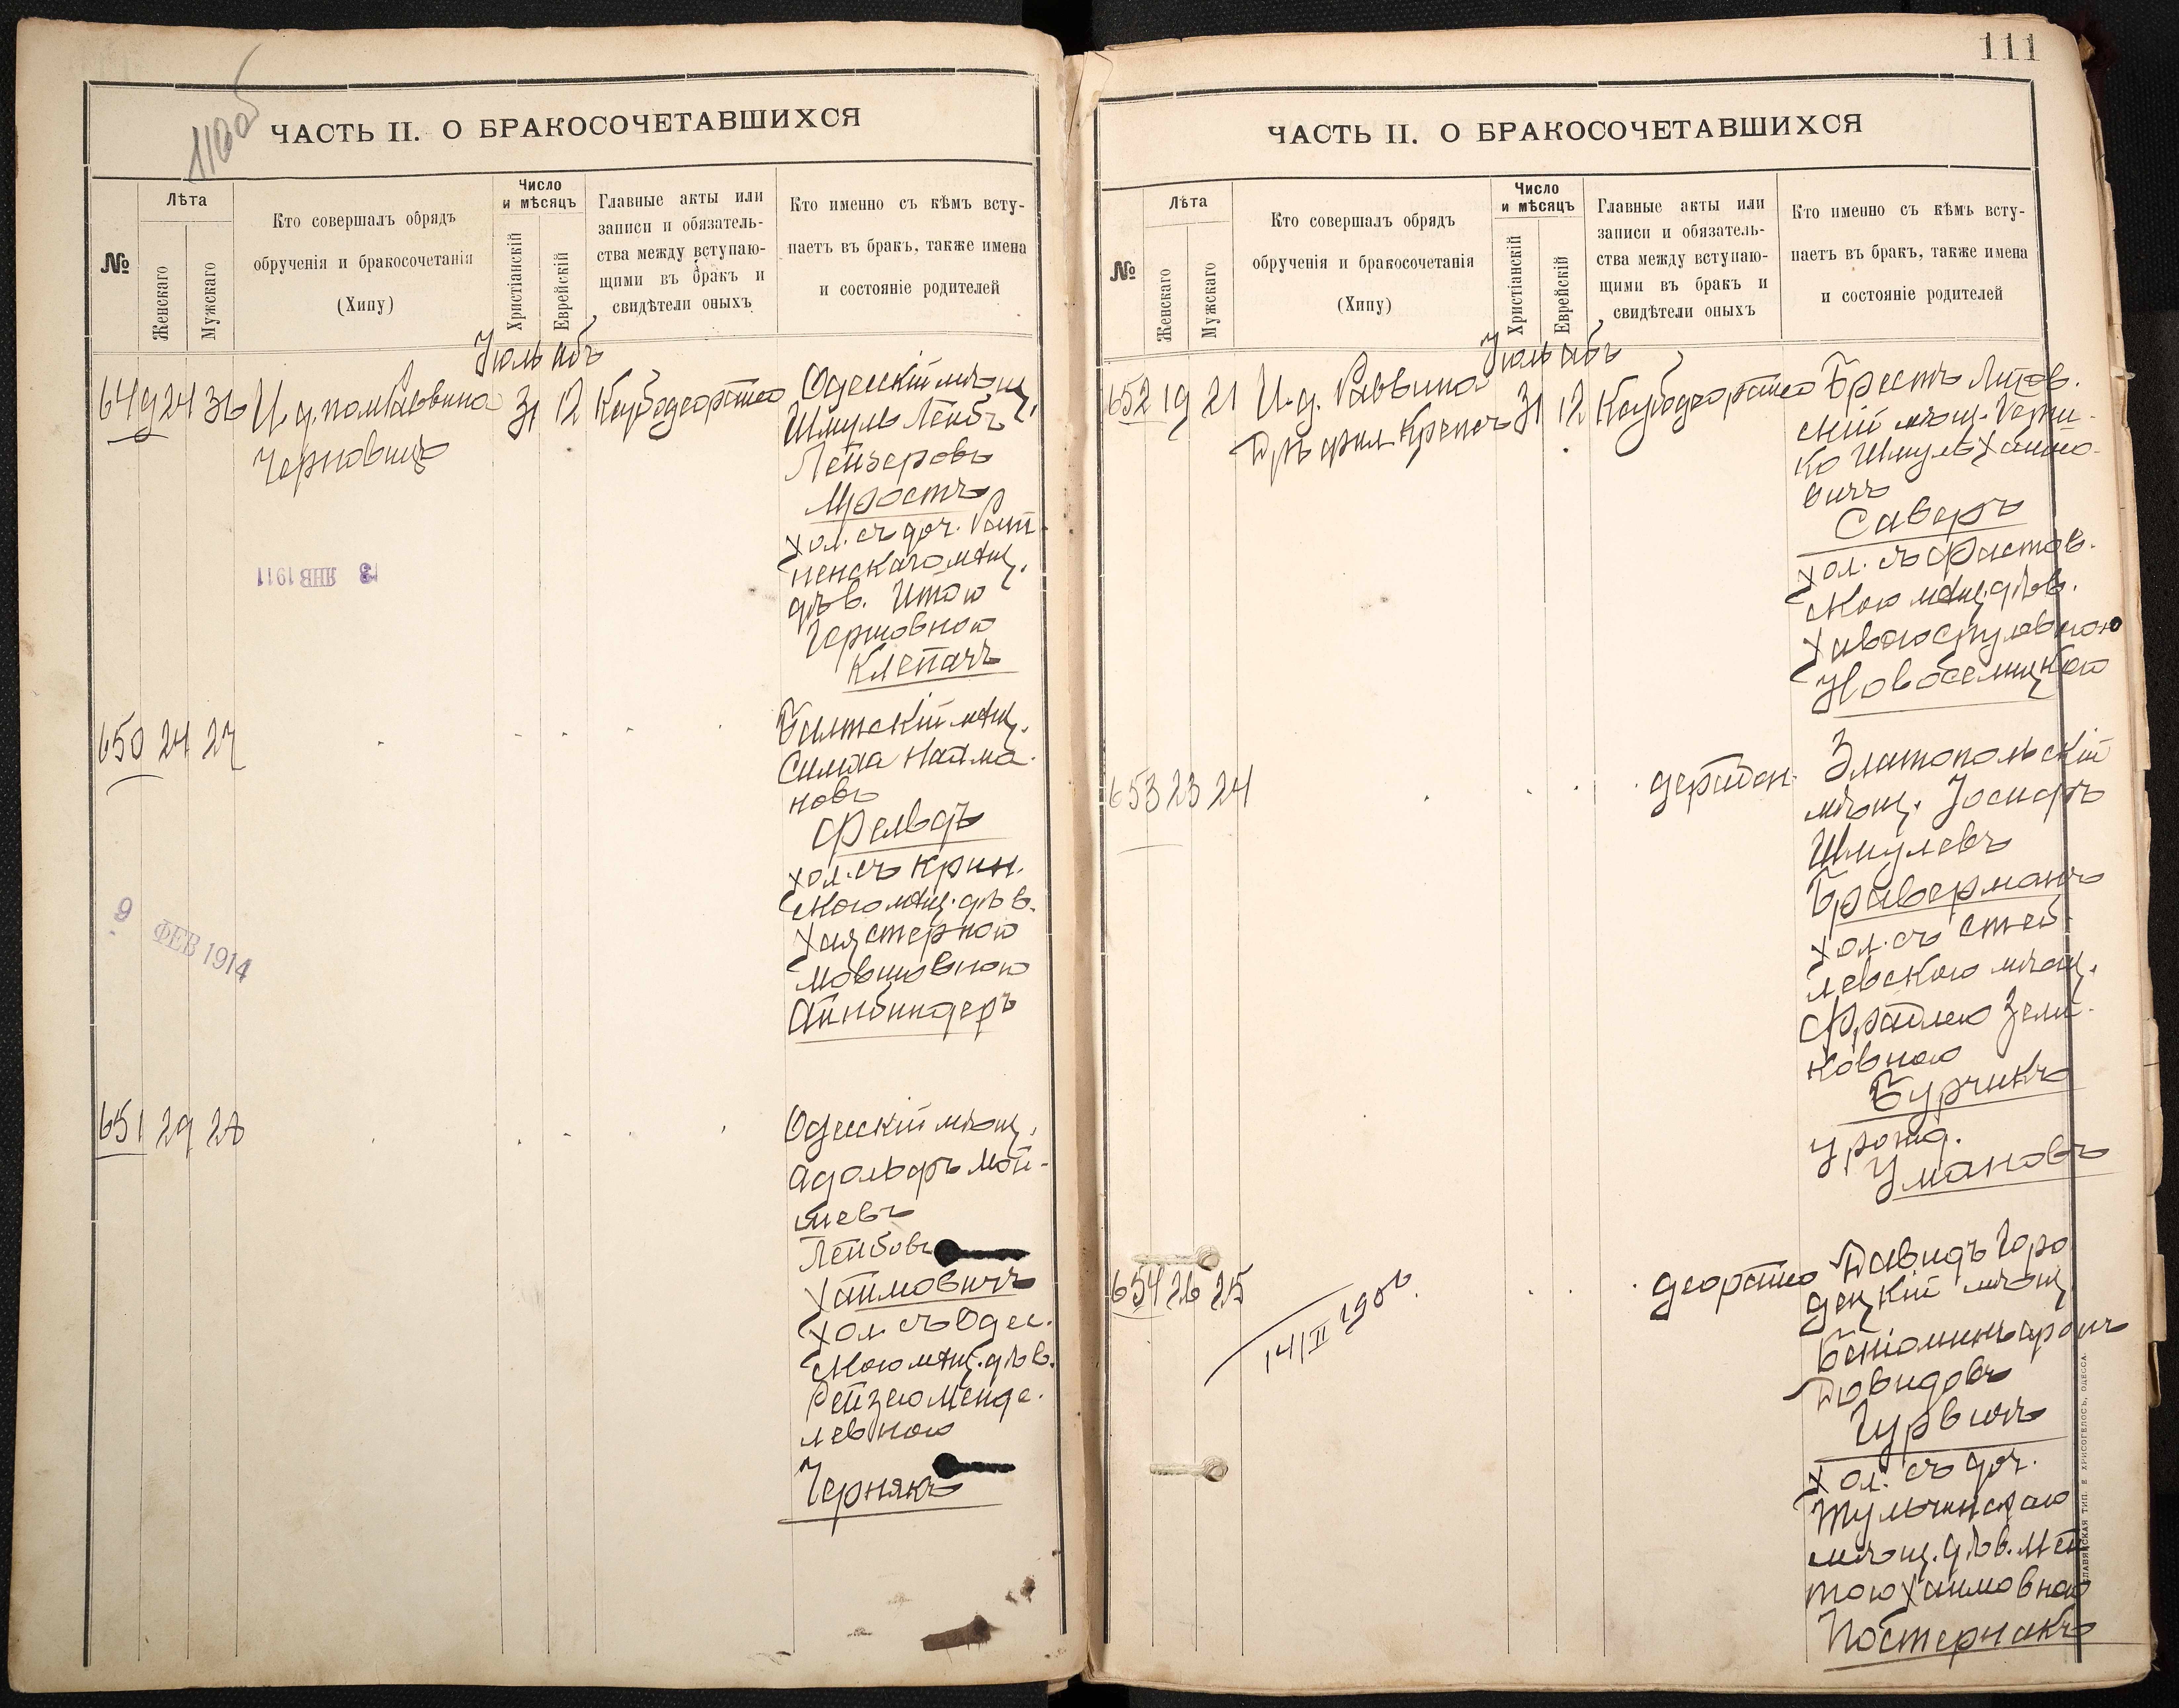 110об
ЧАСТЬ II. О БРАКОСОЧЕТАВШИХСЯ
№
Лѣта
Женскаго
Мужскаго
Кто совершалъ обрядъ
обрученія и бракосочетанія
(Хипу)
Число
и мѣсяцъ
Христіанскій
Еврейскій
Главные акты или
записи и обязатель-
ства между вступаю-
щими въ бракъ и
свидѣтели оныхъ
Кто именно съ кѣмъ всту-
паетъ въ бракъ, также имена
и состояніе родителей
Іюль Абъ
649 24 36 И. д. пом. Раввина 31 12
Черновицъ
Одесскій мѣщ.
Шмуль Лейбъ
Лейзеровъ
Мростъ
хол. съ доч.
пенскаго мѣщ.
дѣв. Итою
Гершовною
Клепачъ
3 ЯНВ 1911
650 24 27
Балтскій мѣщ.
Симха Найма-
новъ
Фельдъ
хол. съ Крин.
скою мѣщ. дѣв.
Хая Стерною
Мовшовною
Айнбиндеръ
9 ФЕВ 1914
651 29 28
Одесскій мѣщ.
Адольфъ Мой-
шевъ
Лейбовъ
Хаимовичъ
хол. съ Одес.
скою мѣщ. дѣв.
Рейзею Менде-
левною
Чернякъ
111
ЧАСТЬ II. О БРАКОСОЧЕТАВШИХСЯ
№
Лѣта
Женскаго
Мужскаго
Кто совершалъ обрядъ
обрученія и бракосочетанія
(Хипу)
Число
и мѣсяцъ
Христіанскій
Еврейскій
Главные акты или
записи и обязатель-
ства между вступаю-
щими въ бракъ и
свидѣтели оныхъ
Кто именно съ кѣмъ всту-
паетъ въ бракъ, также имена
и состояніе родителей
Іюль Абъ
652 19 21 И. д. Раввина 31 12
Д-ръ фил. Крепсъ
Брестъ Литов.
скій мѣщ. Герш-
ко Шмуль Хаимо-
вичъ
Саверъ
хол. съ Фастов.
скою мѣщ. дѣв.
Хавою Сруловною
Новоселицкою
653 23 24
Златопольскій
мѣщ. Іосифъ
Шмулевъ
Браверманъ
хол. съ
левскою мѣщ.
Фрадлею Зели-
ковною
Бурчикъ
урожд.
Умановъ
654 26 25
14/II 1906.
Давидъ Горо
децкій мѣщ.
Беніоминъ Аронъ
Довидовъ
Гурвичъ
хол. съ доч.
Тульчинскаго
мѣщ. дѣв. Мей
тою Хаимовною
Постернакъ
СЛАВЯНСКАЯ ТИП. Е. ХРИСОГЕЛОСЪ, ОДЕССА.